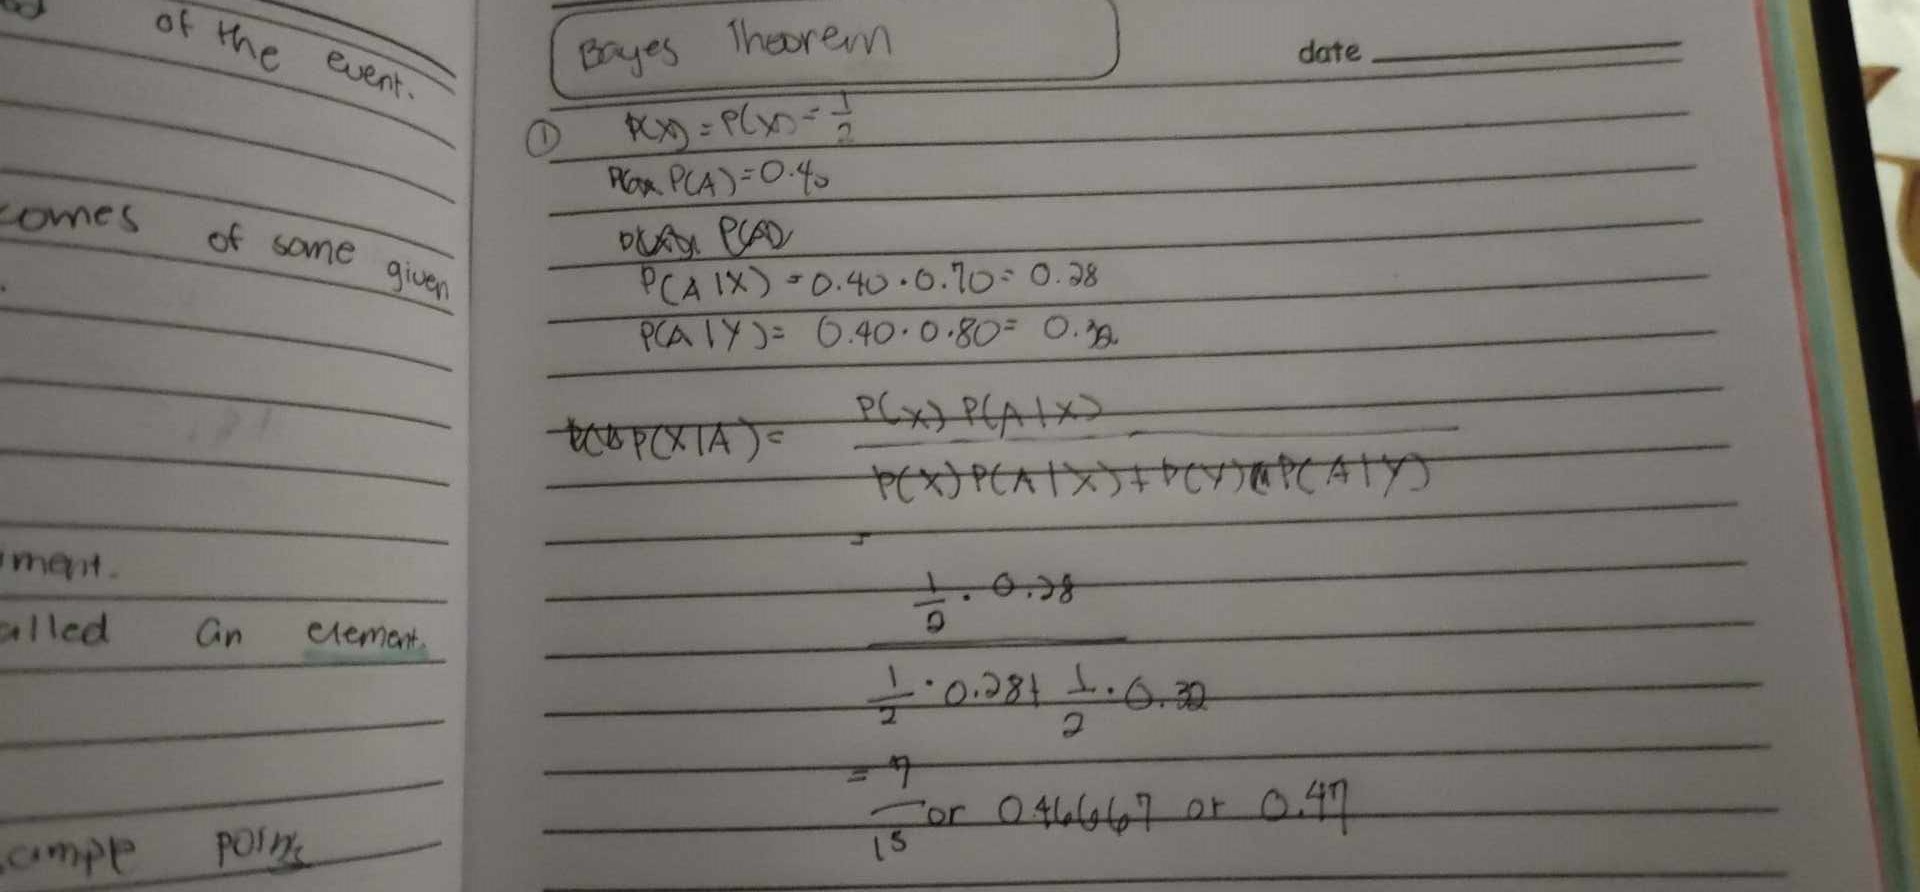 of the event.
comes of some given
ment.
alled an element.
sample points
Bayes Theorem
date
① P(X) = P(Y) = 1/2
P(A) = 0.40
P(A|X) = 0.40 · 0.70 = 0.28
P(A|Y) = 0.40 · 0.80 = 0.32
P(X|A) = P(X) P(A|X)
P(X) P(A|X) + P(Y) P(A|Y)
=
1/2 · 0.28
1/2 · 0.28 + 1/2 · 0.32
= 7/15 or 0.46667 or 0.47